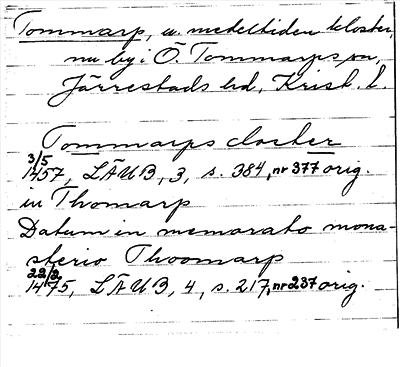 Tommarp, u. medeltiden kloster,
nu by i Ö. Tommarps sn,
Järrestads hd, Krist. l.
Tommarps closter
3/5
1457, LÄUB, 3, s. 384, nr 377 orig.
in Thomarp
Datum in memorato mona-
sterio Thoomarp
22/2
1475, LÄUB, 4, s. 217, nr 237 orig.